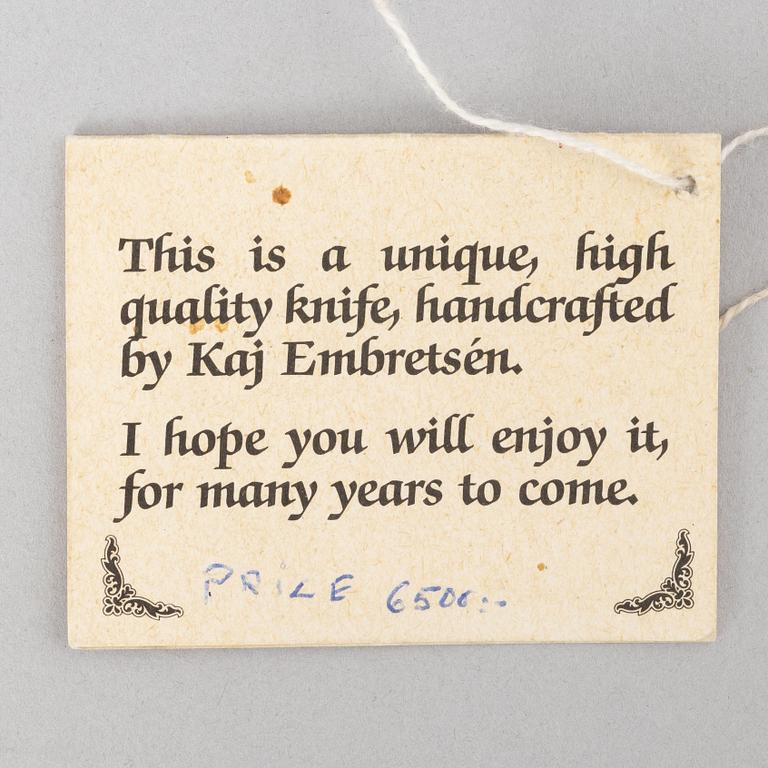 This is a unique, high
quality knife, handcrafted
by Kaj Embretsén.
I hope you will enjoy it,
for many years to come.
PRICE 6500:-